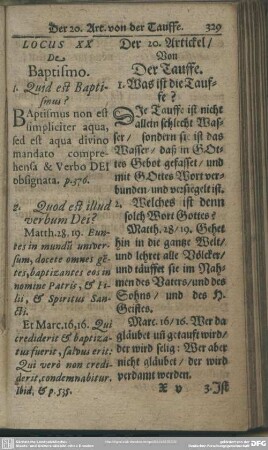 Der 20. Art. von der Tauffe. 329
LOCUS XX
De
Baptismo.
1. Quid est Bapti-
smus?
BAptismus non est
simpliciter aqua,
sed est aqua divino
mandato compre-
hensa & Verbo DEI
obsignata. p.376.
2. Quod est illud
verbum Dei?
Matth.28.19. Eun-
tes in mundū univer-
sum, docete omnes gē-
tes, baptizantes eos in
nomine Patris, & Fi-
lii, & Spiritus San-
cti.
Et Marc.16,16. Qui
crediderit & baptiza-
tus fuerit, salvus erit:
Qui verò non credi-
derit, condemnabitur.
Ibid, & p. 535.
Der 20. Artickel/
Von
Der Tauffe.
1. Was ist die Tauf-
fe?
DIe Tauffe ist nicht
allein schlecht Was-
ser/ sondern sie ist das
Wasser/ daß in GOt-
tes Gebot gefasset/ und
mit GOttes Wort ver-
bunden und versiegelt ist.
2. Welches ist denn
solch Wort Gottes?
Matth. 28/19. Gehet
hin in die gantze Welt/
und lehret alle Völcker/
und täuffet sie im Nah-
men des Vaters/und des
Sohns/ und des H.
Geistes.
Marc. 16/16. Wer da
gläubet uñ getauft wird/
der wird selig: Wer aber
nicht gläubet/ der wird
verdamt werden.
X v 3. Ist